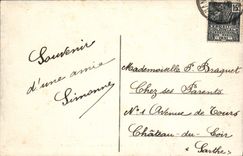 Souvenir
d'une amie
Simonne
Mademoiselle P. Braquet
Chez ses Parents
N° 1 Avenue de Tours
Château-du-Loir
"Sarthe"